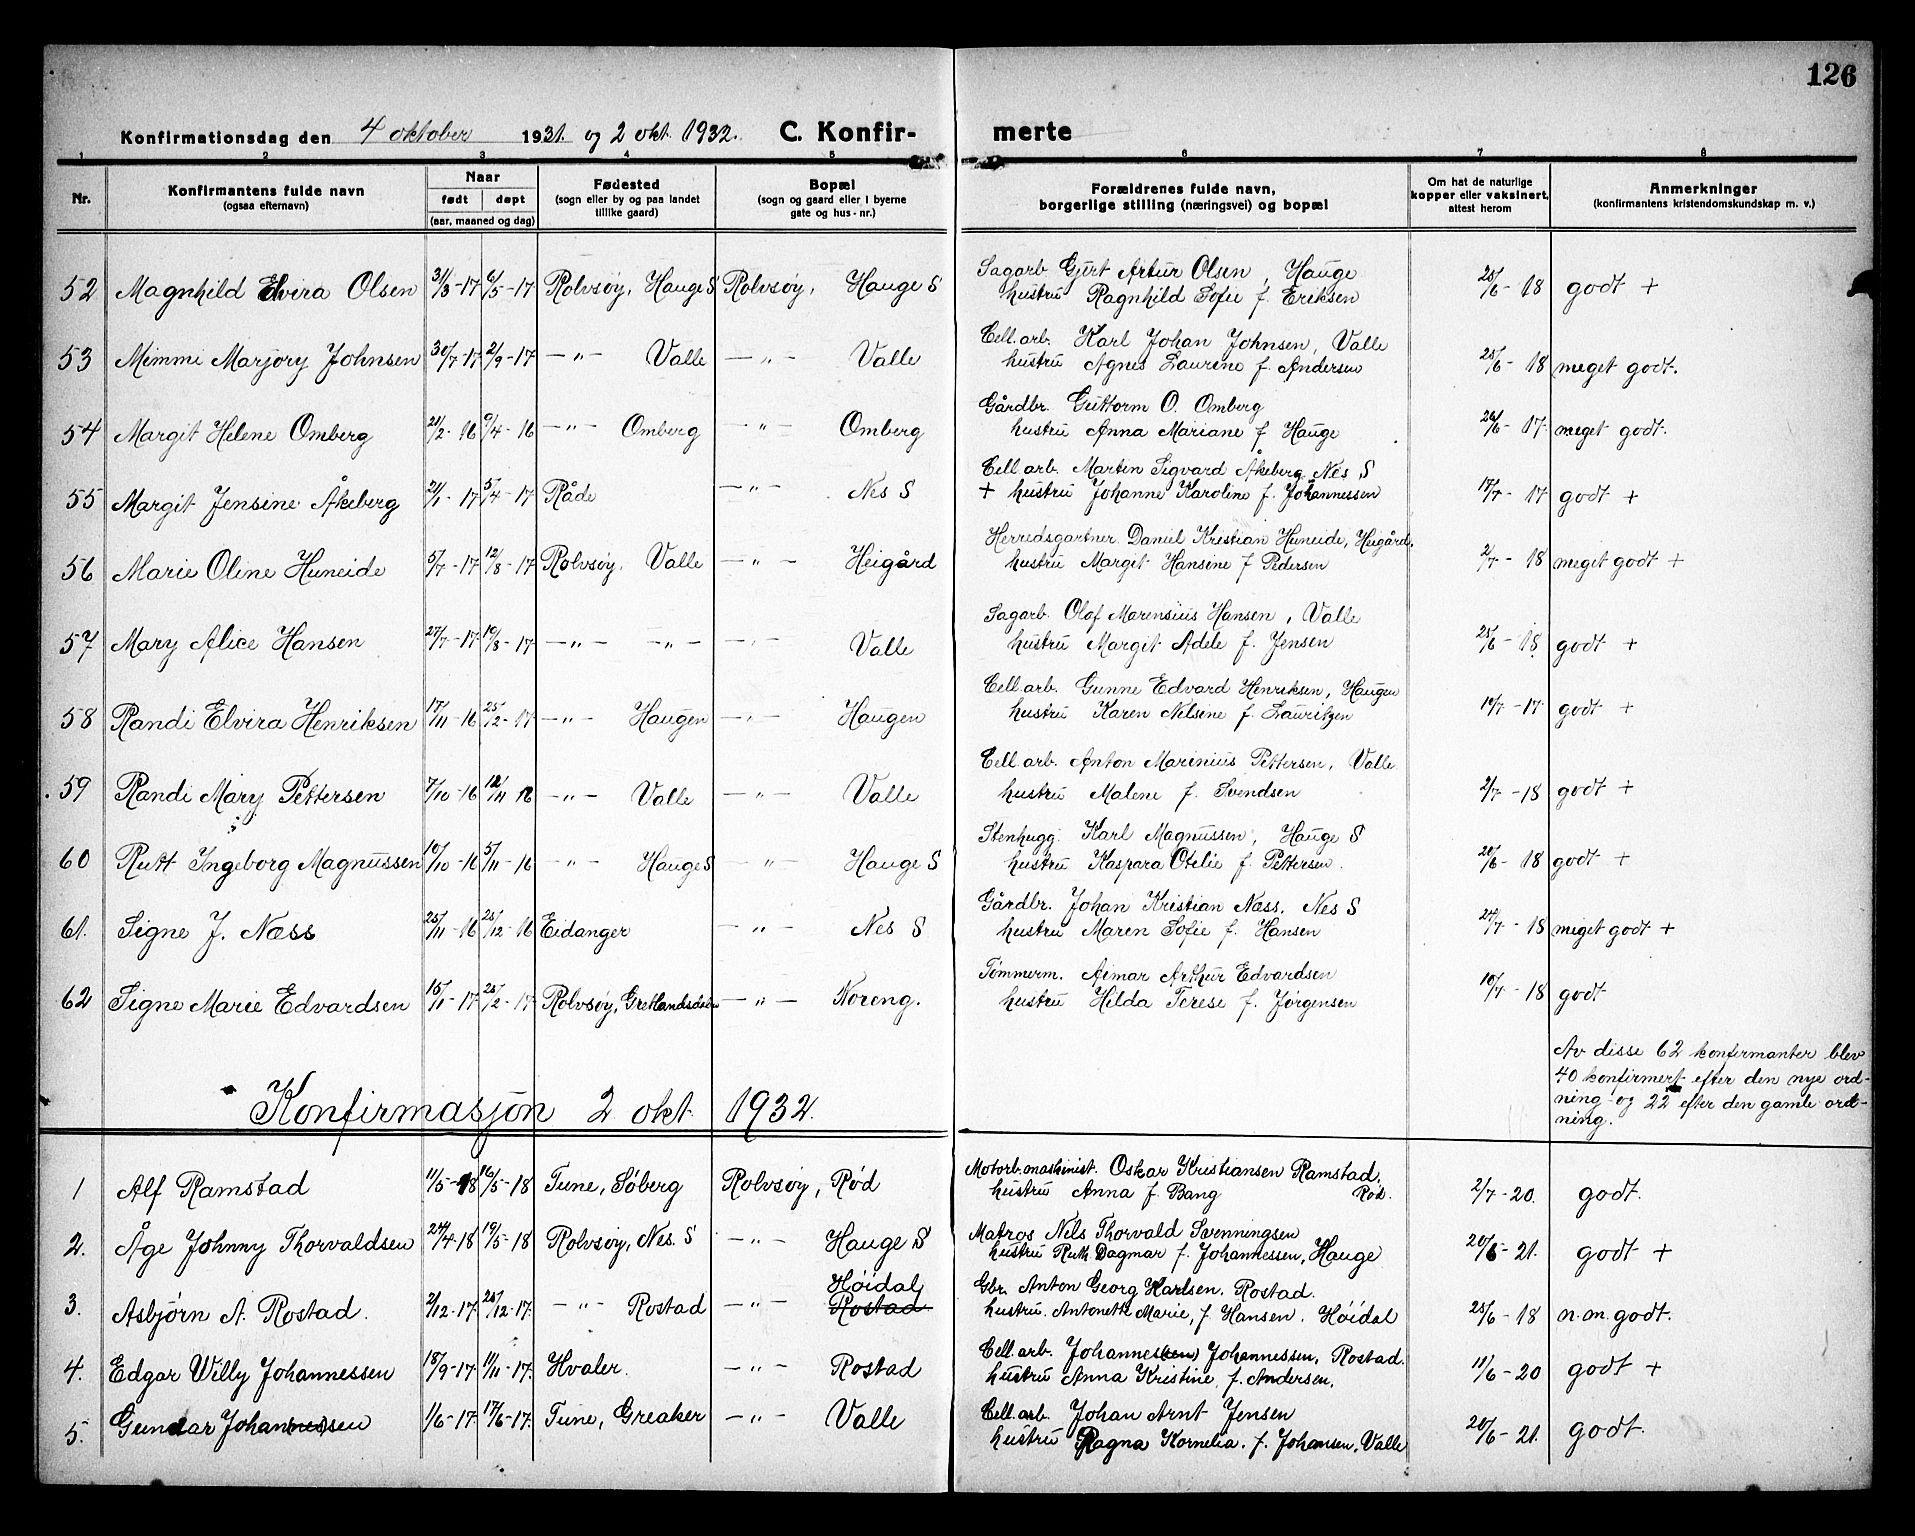 126
Konfirmationsdag den 4 oktober 1931. og 2 okt. 1932. C. Konfir- merte
1 2 3 4 5 6 7 8
Nr. Konfirmantens fulde navn (ogsaa efternavn) Naar født døpt (aar, maaned og dag) Fødested (sogn eller by og paa landet tillike gaard) Bopæl (sogn og gaard eller i byerne gate og hus-nr.) Forældrenes fulde navn, borgerlige stilling (næringsvei) og bopæl Om hat de naturlige kopper eller vaksinert, attest herom Anmerkninger (konfirmantens kristendomskundskap m. v.)
52 Magnhild Elvira Olsen 31/3-17 6/5-17 Rolvsøy, Hauge S Rolvsøy, Hauge S Sagarb. Gjert Artur Olsen, Hauge 25/6-18 godt +
hustru Ragnhild Sofie f. Eriksen
53 Mimmi Marjory Johnsen 30/7-17 2/9-17 -"- Valle -"- Valle Cell.arb. Karl Johan Johnsen, Valle 25/6-18 meget godt.
hustru Agnes Laurine f. Andersen
54 Margit Helene Omberg 21/2-16 9/4-16 -"- Omberg -"- Omberg Gårdbr. Guttorm O. Omberg 26/6-17 meget godt.
hustru Anna Mariane f Hauge
55 Margit Jensine Åkeberg 21/1-17 5/4-17 Råde -"- Nes S Cell.arb. Martin Sigvard Åkeberg Nes S 17/7-17 godt +
+ hustru Johanne Karoline f. Johannessen
56 Marie Oline Huneide 5/7-17 12/8-17 Rolvsøy. Valle -"- Heigård Herredsgartner Daniel Kristian Huneide, Heigård. 2/7-18 meget godt +
hustru Margit Hansine f Pedersen
57 Mary Alice Hansen 27/7-17 19/8-17 -"- -"- -"- Valle Sagarb. Olaf Marensius Hansen, Valle 25/6-18 godt +
hustru Margit Adele f. Jensen
58 Randi Elvira Henriksen 17/11-16 25/2-17 -"- Haugen -"- Haugen Cell.arb. Gunne Edvard Henriksen, Haugen 19/7-17 godt +
hustru Karen Nilsine f. Lauritzen
59 Randi Mary Pettersen 7/10-16 12/11-16 -"- Valle -"- Valle Cell.arb. Anton Marinius Pettersen, Valle 2/7-18 godt +
hustru Malene f. Svendsen
60 Rutt Ingeborg Magnussen 10/10-16 5/11-16 -"- Hauge S -"- Hauge S Stenhugg. Karl Magnussen, Hauge S 20/6-18 godt +
hustru Kaspara Otelie f. Pettersen.
61. Signe J. Næss 25/11-16 25/12-16 Eidanger -"- Nes S Gårdbr. Johan Kristian Næss. Nes S 24/7-18 meget godt +
hustru Maren Sofie f. Hansen
62 Signe Marie Edvardsen 15/1-17 25/2-17 Rolvsøy, -"- Noreng. Tømmerm. Aimar Arthur Edvardsen 10/7-18 godt
hustru Hilda Terese f. Jørgensen
Av disse 62 konfirmanter blev
40 konfirmert efter den nye ord-
ning og 22 efter den gamle ord-
ning.
Konfirmasjon 2 okt. 1932.
1 Alf Ramstad 11/5-18 16/5-18 Tune, Søberg Rolvsøy, Rød Motorb.maskinist. Oskar Kristiansen Ramstad, 2/7-20. godt.
hustru Anna f. Bang Rød.
2. Åge Johnny Thorvaldsen 24/4-18 19/5-18 Rolvsøy, Nes. S -"- Hauge S Matros Nils Thorvald Svenningsen 20/6-21. godt +
hustru Ruth Dagmar f. Johannessen, Hauge
3. Asbjørn A. Rostad. 2/12-17. 25/12-17. -"- Rostad -"- Høidal Rostad Gbr. Anton Georg Karlsen. Rostad. 25/6-18 n.m. godt.
hustru. Antonette Marie, f. Hansen. Høidal
4. Edgar Willy Johannessen 18/9-17. 11/11-17. Hvaler. -"- Rostad Cell.arb. Johannes(sen) Johannessen, Rostad. 11/6-20 godt +
hustru Anna Kristine f. Andersen.
5. Gunnar Johan(nes)sen 1/6-17. 17/6-17. Tune, Greaker -"- Valle Cell.arb. Johan Arnt Jensen 20/6-21. godt.
hustru Ragna Kornelia. f. Johansen, Valle